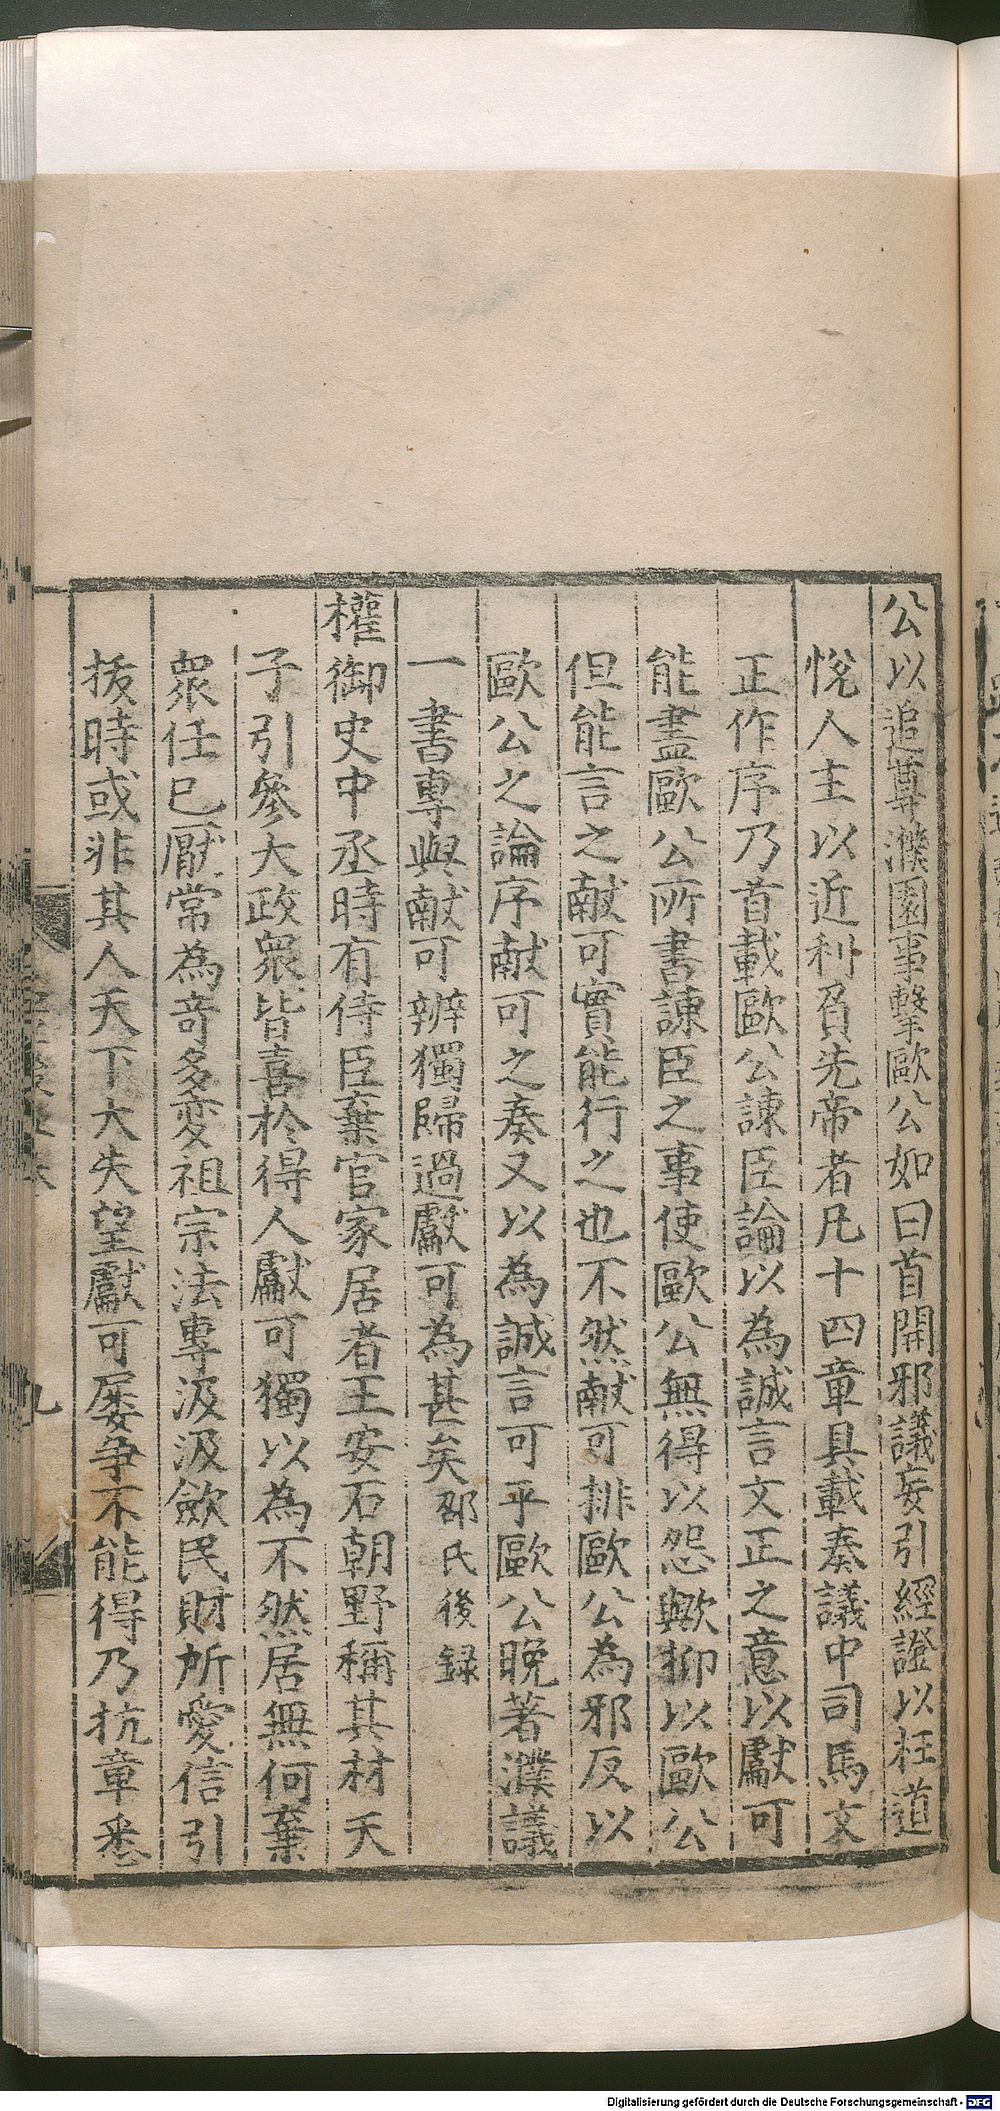 公以追尊濮園事擊歐公如曰首開邪議妄引經證以枉道
悅人主以近利負先帝者凡十四章具載奏議中司馬文
正作序乃首載歐公諫臣論以為誠言文正之意以獻可
能盡歐公所書諫臣之事使歐公無得以怨歟抑以歐公
但能言之献可實能行之也不然献可排歐公為邪反以
歐公之論序献可之奏又以為誠言可乎歐公晚著濮議
一書專與献可辨獨歸過獻可為甚矣邵氏後録
權御史中丞時有侍臣棄官家居者王安石朝野稱其材天
子引參大政衆皆喜於得人獻可獨以為不然居無何棄
衆任已厭常為奇多变祖宗法專汲汲斂民財所愛信引
拔時或非其人天下大失望獻可屡争不能得乃抗章悉
九
Digitalisierung gefördert durch die Deutsche Forschungsgemeinschaft - DFG